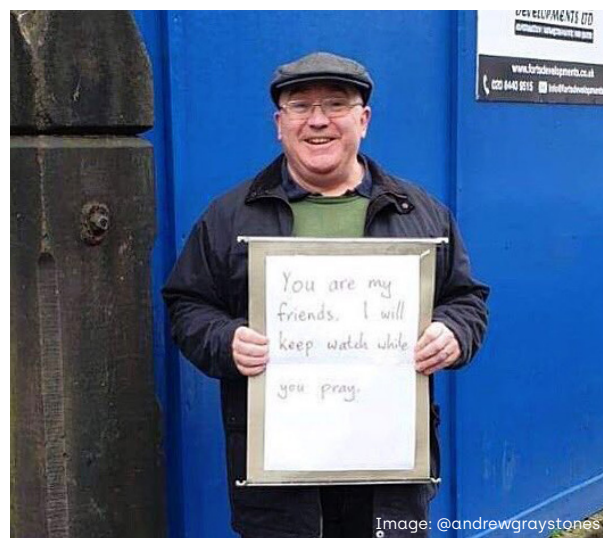 DEVELOPMENTS LTD
www.fortisdevelopments.co.uk
020 8440 9515
info@fortisdevelopments
You are my
friends. I will
keep watch while
you pray.
Image: @andrewgraystones